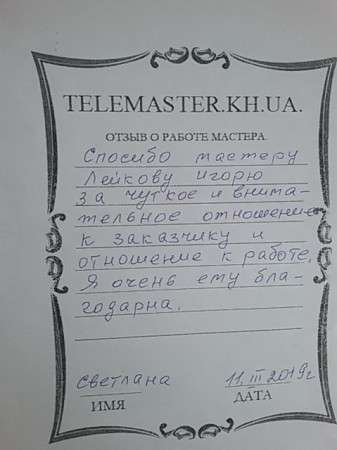 TELEMASTER.KH.UA.
ОТЗЫВ О РАБОТЕ МАСТЕРА.
Спосибо мастеру
Лейкову игорю
за чуткое и внима-
тельное отношение
к заказчику и
отношение к работе.
Я очень ему бла-
годарна.
светлана 11. III 2019г
ИМЯ ДАТА